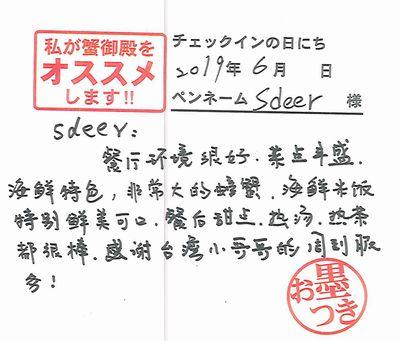 私が蟹御殿を
オススメ
します!!
チェックインの日にち
2019年6月 日
ペンネーム Sdeer 様
sdeer:
餐厅环境很好.菜点丰盛.
海鲜特色,非常大的螃蟹.海鲜米饭
特别鲜美可口.餐后甜点.热汤.热茶
都很棒.感谢台湾小哥哥的周到服
务!
お墨つき